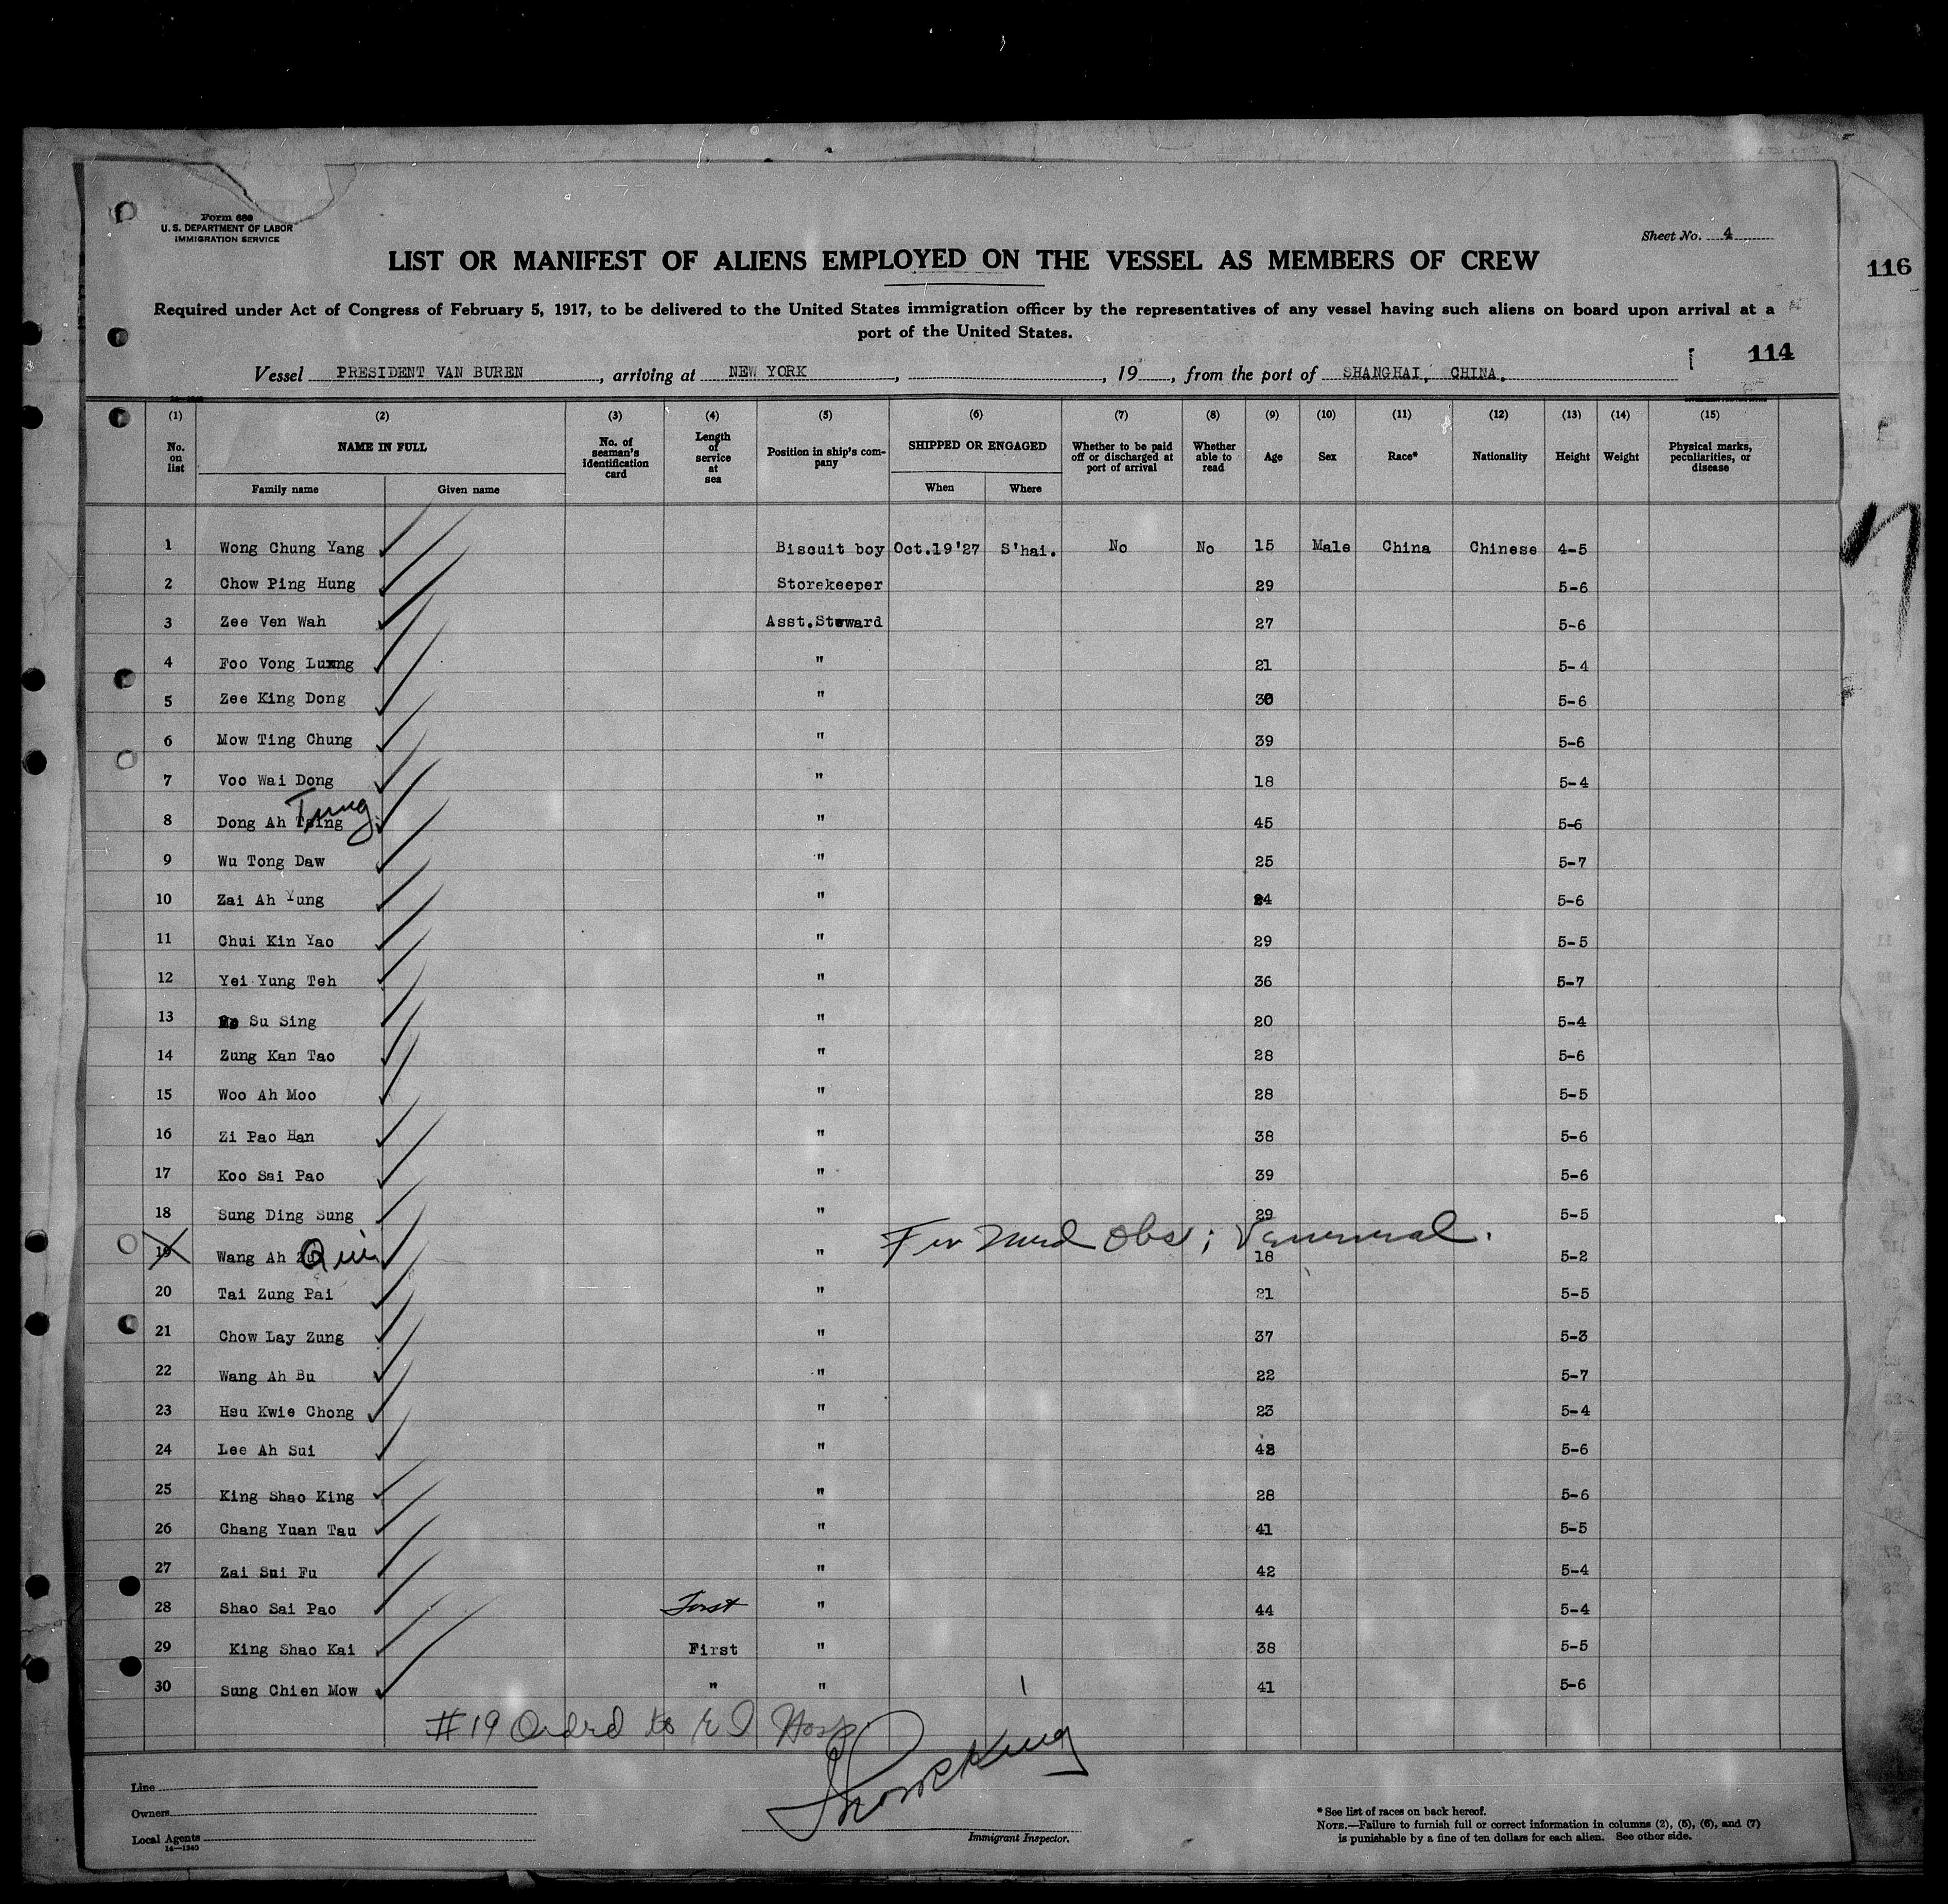 Form 680
U. S. DEPARTMENT OF LABOR
IMMIGRATION SERVICE
Sheet No. 4
LIST OR MANIFEST OF ALIENS EMPLOYED ON THE VESSEL AS MEMBERS OF CREW
116
Required under Act of Congress of February 5, 1917, to be delivered to the United States immigration officer by the representatives of any vessel having such aliens on board upon arrival at a
port of the United States.
114
Vessel PRESIDENT VAN BUREN, arriving at NEW YORK, , 19 , from the port of SHANGHAI, CHINA.
(1) (2) (3) (4) (5) (6) (7) (8) (9) (10) (11) (12) (13) (14) (15)
No. on list NAME IN FULL No. of seaman's identification card Length of service at sea Position in ship's company SHIPPED OR ENGAGED Whether to be paid off or discharged at port of arrival Whether able to read Age Sex Race* Nationality Height Weight Physical marks, peculiarities, or disease
Family name Given name When Where
1 Wong Chung Yang Biscuit boy Oct.19'27 S'hai. No No 15 Male China Chinese 4-5
2 Chow Ping Hung Storekeeper 29 5-6
3 Zee Ven Wah Asst.Steward 27 5-6
4 Foo Vong " 21 5-4
5 Zee King Dong " 30 5-6
6 Mow Ting Chung " 39 5-6
7 Voo Wai Dong " 18 5-4
Tung
8 Dong Ah Tsing " 45 5-6
9 Wu Tong Daw " 25 5-7
10 Zai Ah Yung " 24 5-6
11 Chui Kin Yao " 29 5-5
12 Yei Yung Teh " 36 5-7
13 Su Sing " 20 5-4
14 Zung Kan Tao " 28 5-6
15 Woo Ah Moo " 28 5-5
16 Zi Pao Han " 38 5-6
17 Koo Sai Pao " 39 5-6
18 Sung Ding Sung " 29 5-5
For Med Obs; Venereal.
19 Wang Ah " 18 5-2
20 Tai Zung Pai " 21 5-5
21 Chow Lay Zung " 37 5-3
22 Wang Ah Bu " 22 5-7
23 Hsu Kwie Chong " 23 5-4
24 Lee Ah Sui " 5-6
25 King Shao King " 28 5-6
26 Chang Yuan Tau " 41 5-5
27 Zai Sui Fu " 42 5-4
28 Shao Sai Pao First " 44 5-4
29 King Shao Kai First " 38 5-5
30 Sung Chien Mow " " 41 5-6
#19 Ordrd to E I Hosp
Line
Owners
Local Agents
14—1240
Immigrant Inspector.
* See list of races on back hereof.
NOTE.—Failure to furnish full or correct information in columns (2), (5), (6), and (7)
is punishable by a fine of ten dollars for each alien. See other side.